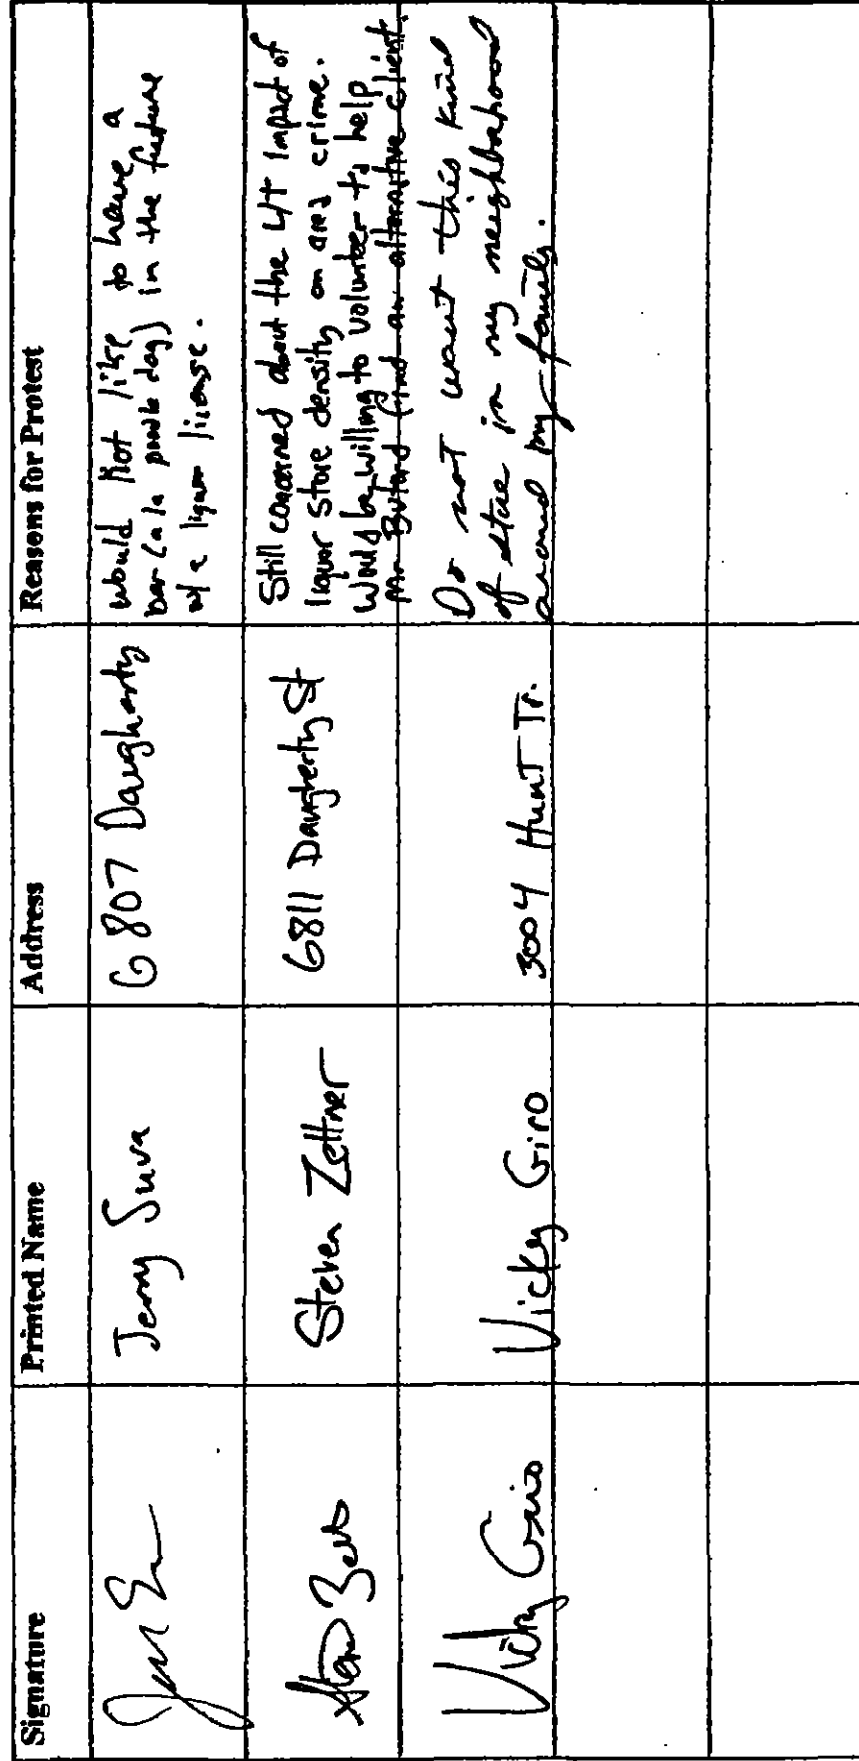 Signature Printed Name Address Reasons for Protest
Jerry Suva 6807 Daugherty
would not like to have a
bar (a la poodle dog) in the future
w/ a liquor license.
Steven Zettner 6811 Daugherty St
Still concerned about the L/T impact of
liquor store density on area crime.
Would be willing to volunteer to help
Mr. find an alternative client.
Vicky Giro Vicky Giro 3004 Hunt Tr.
Do not want this kind
of store in my neighborhood
around my family.